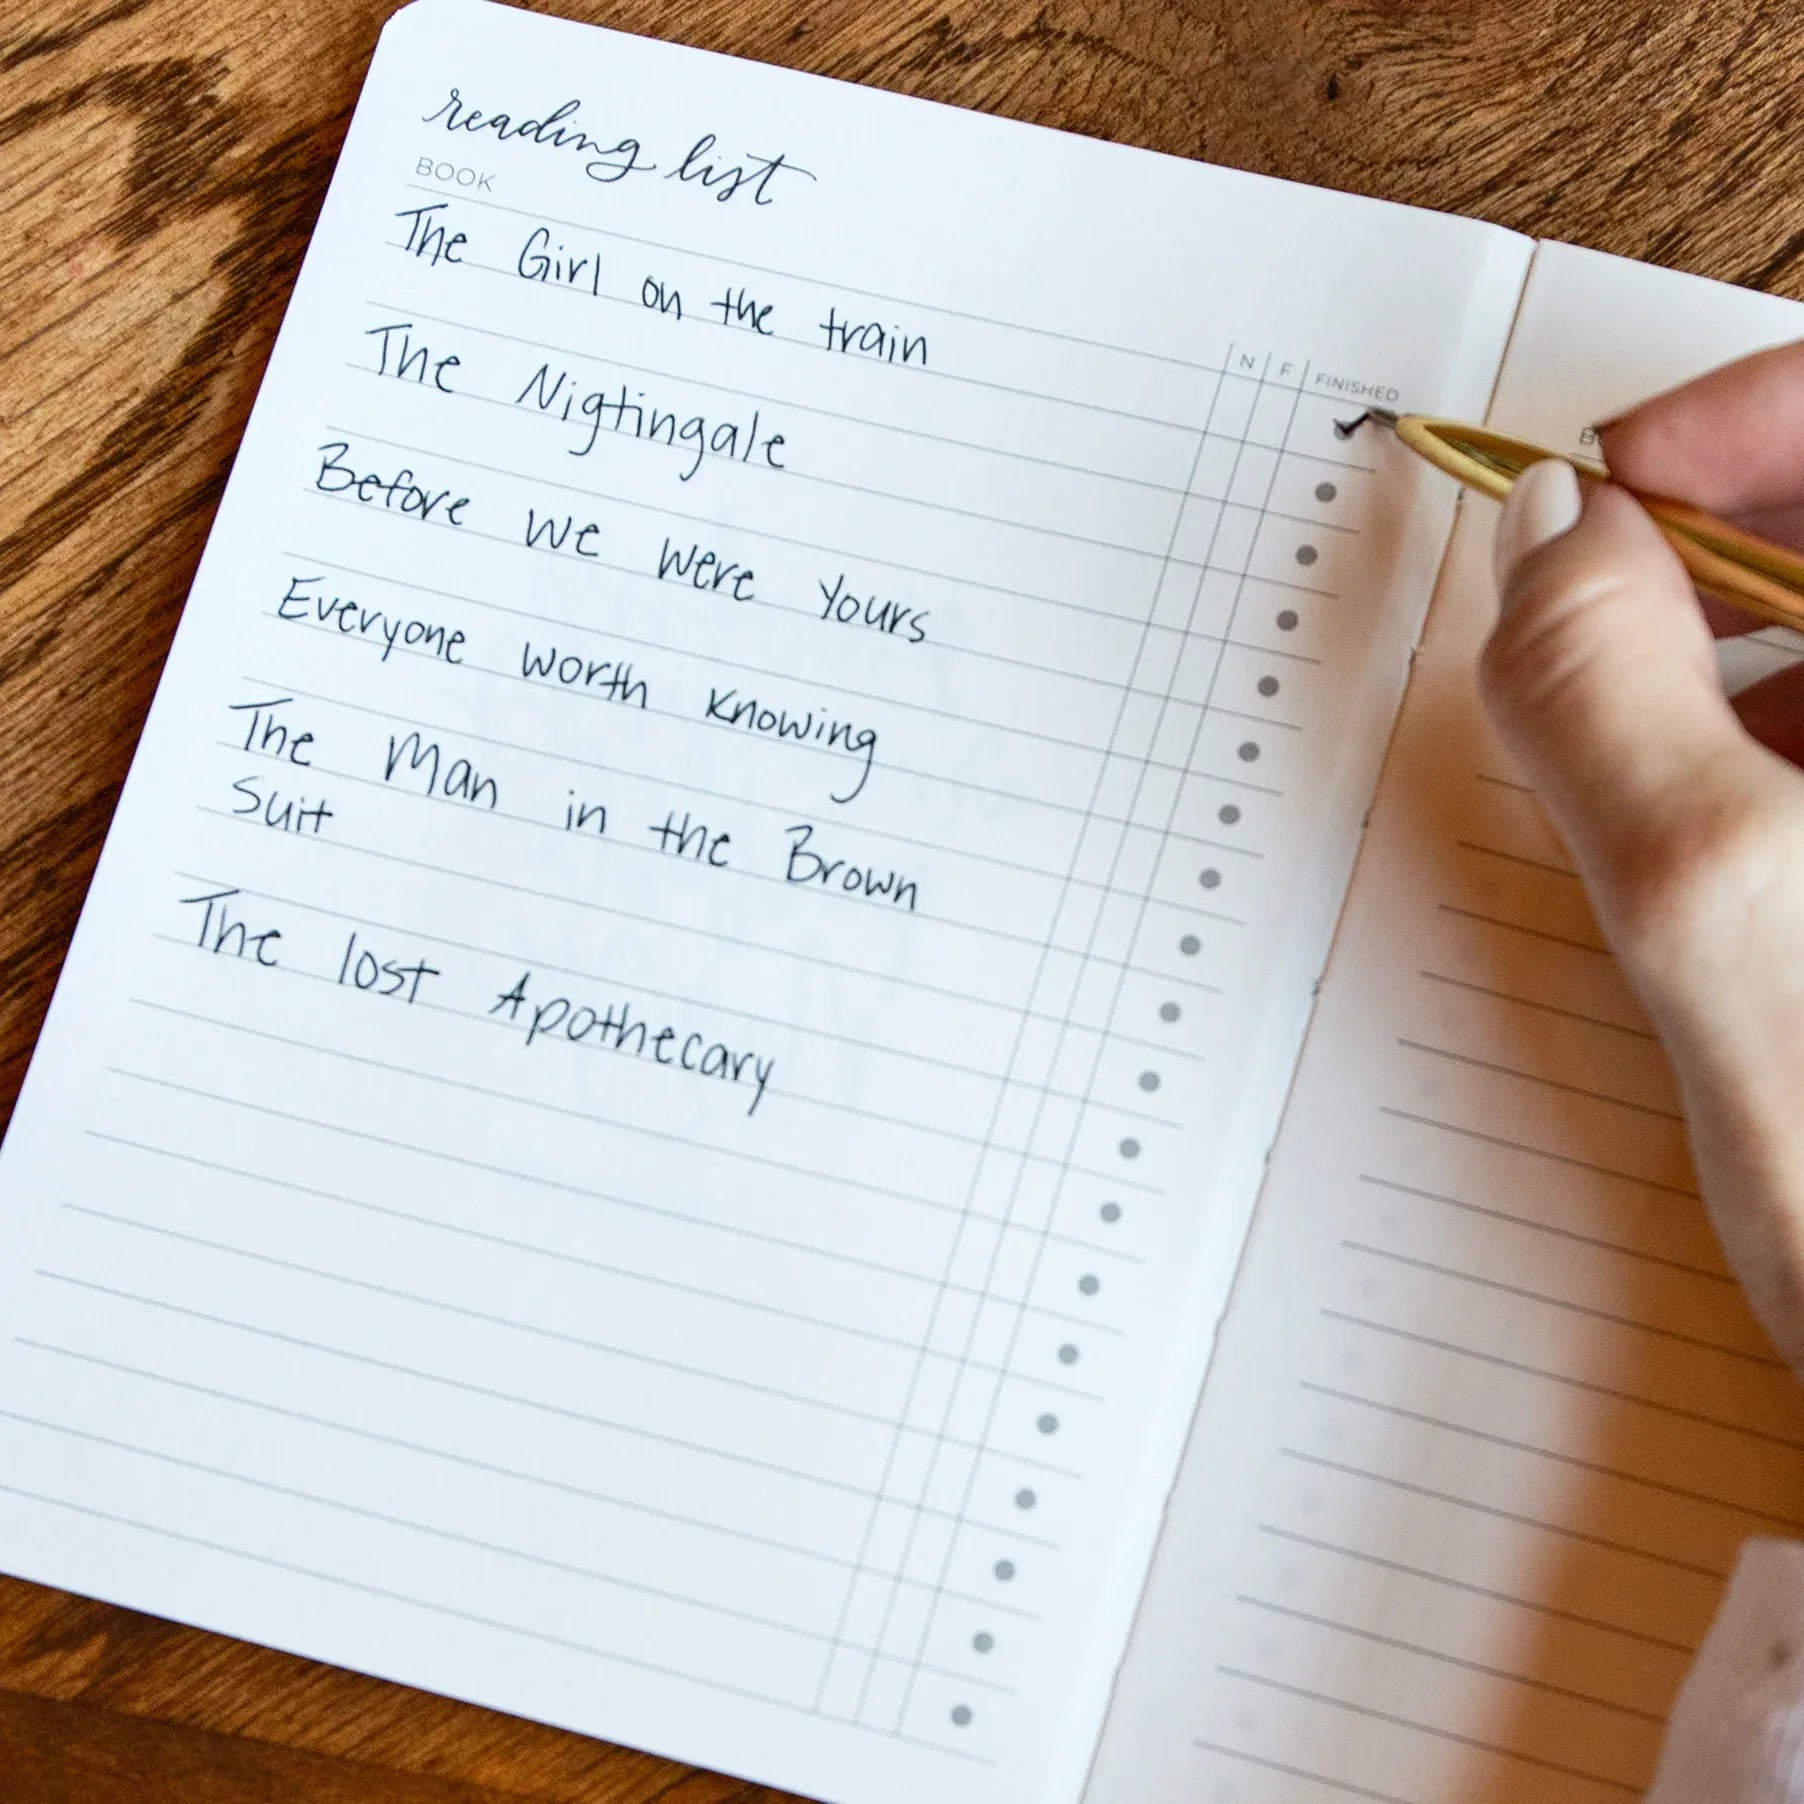 reading list
BOOK
N F FINISHED
The Girl on the train
The Nigtingale
Before we were Yours
Everyone worth Knowing
The Man in the Brown
Suit
The lost Apothecary